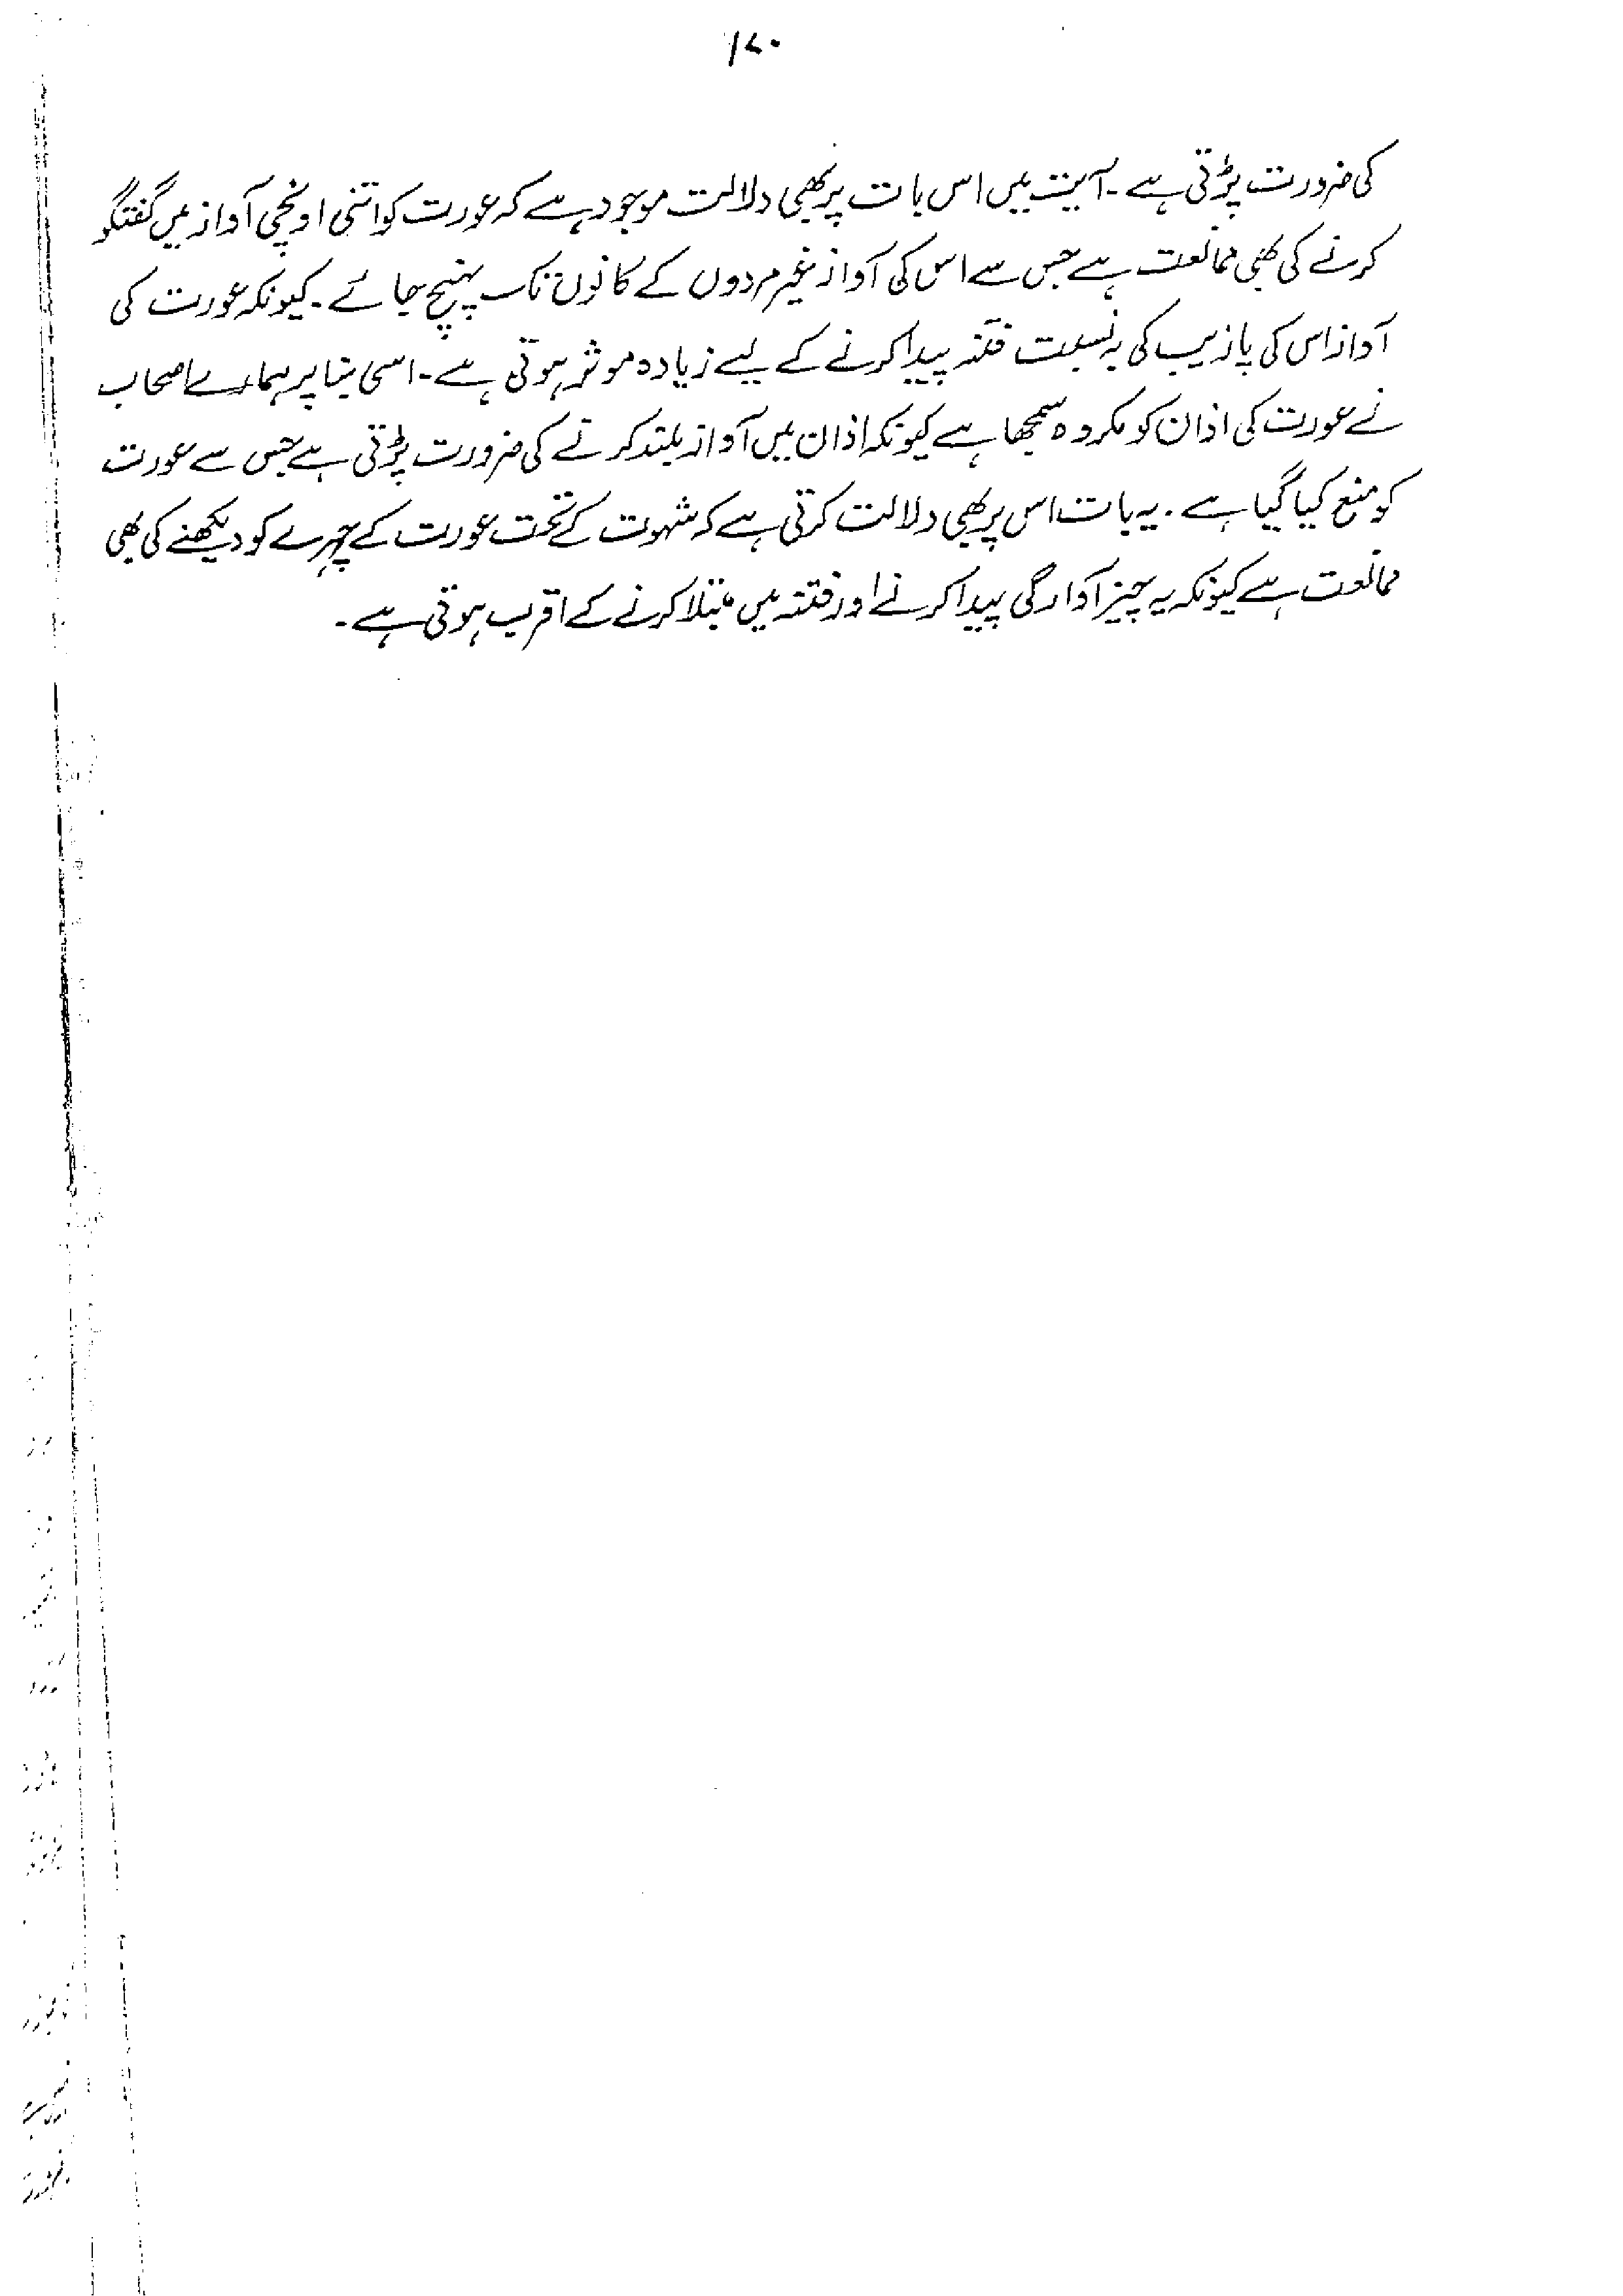 ۱۷۰
کی ضرورت پڑتی ہے۔ آیت میں اس بات پر بھی دلالت موجود ہے کہ عورت کو اتنی اونچی آواز میں گفتگو
کرنے کی بھی ممانعت ہے جس سے اس کی آواز غیر مردوں کے کانوں تک پہنچ جائے۔ کیونکہ عورت کی
آواز اس کی پازیب کی بہ نسبت فتنہ پیدا کرنے کے لیے زیادہ موثر ہوتی ہے۔ اسی بنا پر ہمارے اصحاب
نے عورت کی اذان کو مکروہ سمجھا ہے کیونکہ اذان میں آواز بلند کرنے کی ضرورت پڑتی ہے جس سے عورت
کو منع کیا گیا ہے۔ یہ بات اس پر بھی دلالت کرتی ہے کہ شہوت کے تحت عورت کے چہرے کو دیکھنے کی بھی
ممانعت ہے کیونکہ یہ چیز آوارگی پیدا کرنے اور فتنہ میں مبتلا کرنے کے اقرب ہوتی ہے۔